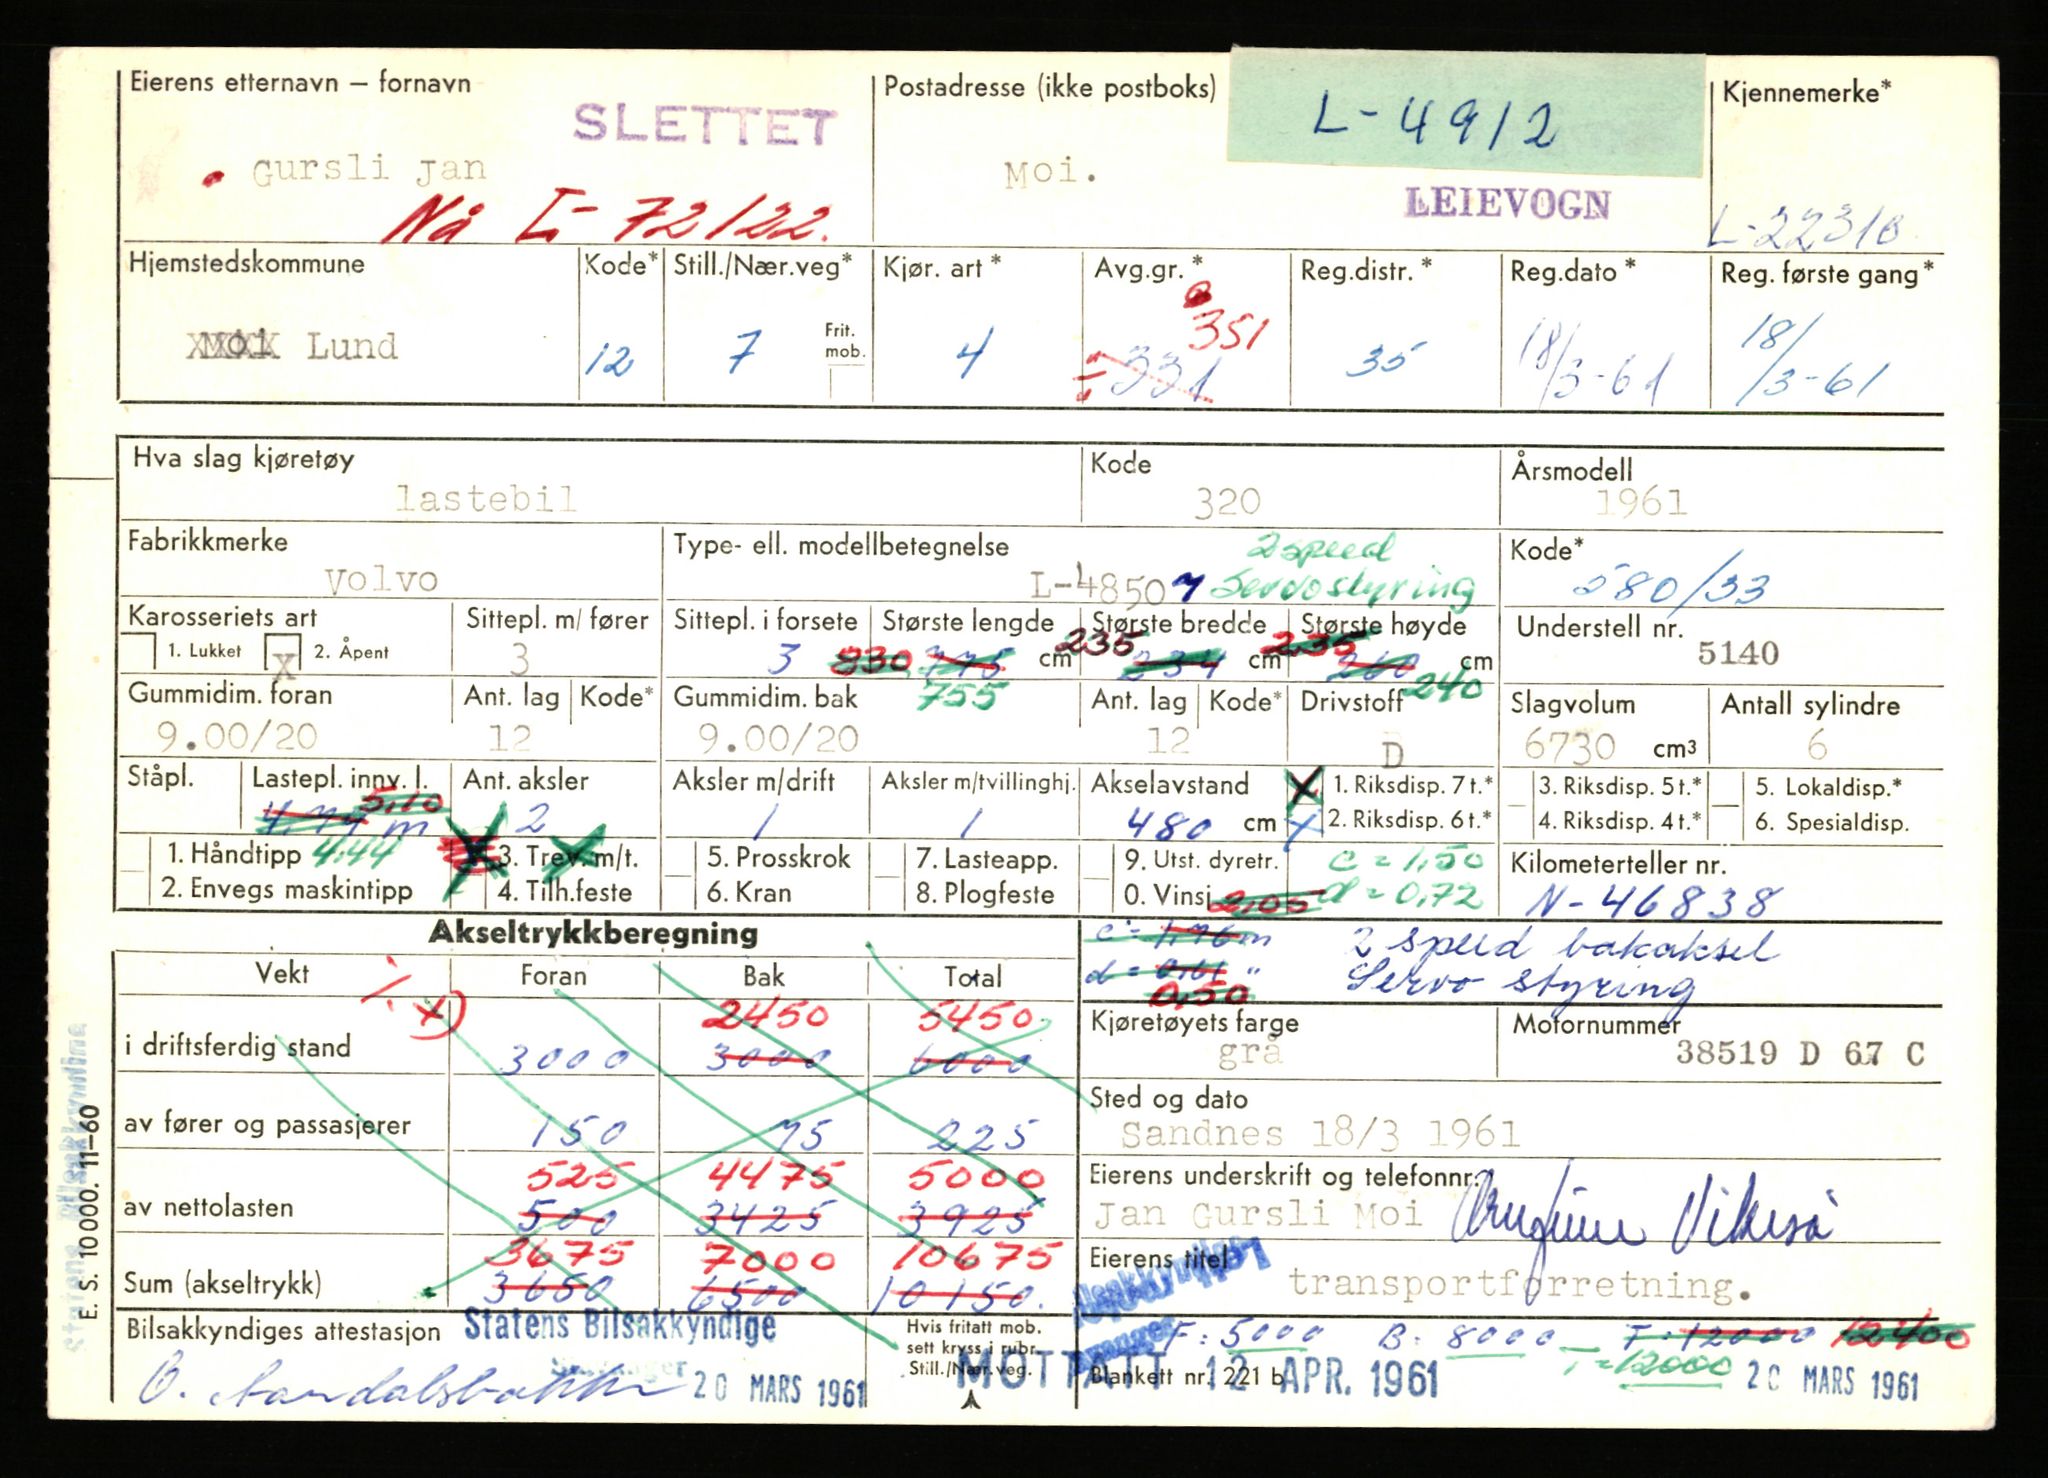 Eierens etternavn – fornavn
SLETTET
Gursli Jan
Nå L- 72122.
Postadresse (ikke postboks)
Moi.
L-4912
LEIEVOGN
Kjennemerke*
L-22316
Hjemstedskommune
XXXX Lund
Kode*
12
Still./Nær.veg*
7
Frit. mob.
Kjør. art*
4
Avg.gr.*
351
331
Reg.distr.*
35
Reg.dato*
18/3-61
Reg. første gang*
18/3-61
Hva slag kjøretøy
lastebil
Kode
320
Årsmodell
1961
Fabrikkmerke
Volvo
Type- ell. modellbetegnelse
L-48507
2 speed
Servostyring
Kode*
580/33
Karosseriets art
1. Lukket
X 2. Åpent
Sittepl. m/ fører
3
Sittepl. i forsete
3
Største lengde
830 775 cm
755
Største bredde
235 234 cm
Største høyde
235 260 cm
240
Understell nr.
5140
Gummidim. foran
9.00/20
Ant. lag
12
Kode*
Gummidim. bak
9.00/20
Ant. lag
12
Kode*
Drivstoff
D
Slagvolum
6730 cm³
Antall sylindre
6
Ståpl.
Lastepl. innv. l.
5,10
4.44
Ant. aksler
2
Aksler m/drift
1
Aksler m/tvillinghj.
1
Akselavstand
480 cm
X 1. Riksdisp. 7 t.*
X 2. Riksdisp. 6 t.*
3. Riksdisp. 5 t.*
4. Riksdisp. 4 t.*
5. Lokaldisp.*
6. Spesialdisp.
1. Håndtipp
2. Envegs maskintipp
3. Trev. m/t.
4. Tilh.feste
5. Prosskrok
6. Kran
7. Lasteapp.
8. Plogfeste
9. Utst. dyretr.
0. Vinsj
2,05
c = 1,50
d = 0,72
Kilometerteller nr.
N-46838
Akseltrykkberegning
c = 1,76 m
d = 0,61 "
0,50
2 speed bakaksel
Servo styring
Vekt
Foran
Bak
Total
i driftsferdig stand
3000
2450
3000
5450
6000
av fører og passasjerer
150
75
225
av nettolasten
525
500
4475
3425
5000
3925
Sum (akseltrykk)
3675
3650
7000
6500
10675
10150.
Kjøretøyets farge
grå
Motornummer
38519 D 67 C
Sted og dato
Sandnes 18/3 1961
Eierens underskrift og telefonnr.
Jan Gursli Moi
Eierens titel
transportforretning.
Bilsakkyndiges attestasjon
Statens Bilsakkyndige
20 MARS 1961
Hvis fritatt mob.
sett kryss i rubr.
Still./Nær.veg.
F: 5000 B: 8000 T: 12000 12400
T = 12000
Blankett nr. 221 b
MOTTATT 12 APR. 1961
20 MARS 1961
E. S. 10 000. 11–60
Statens Bilsakkyndige